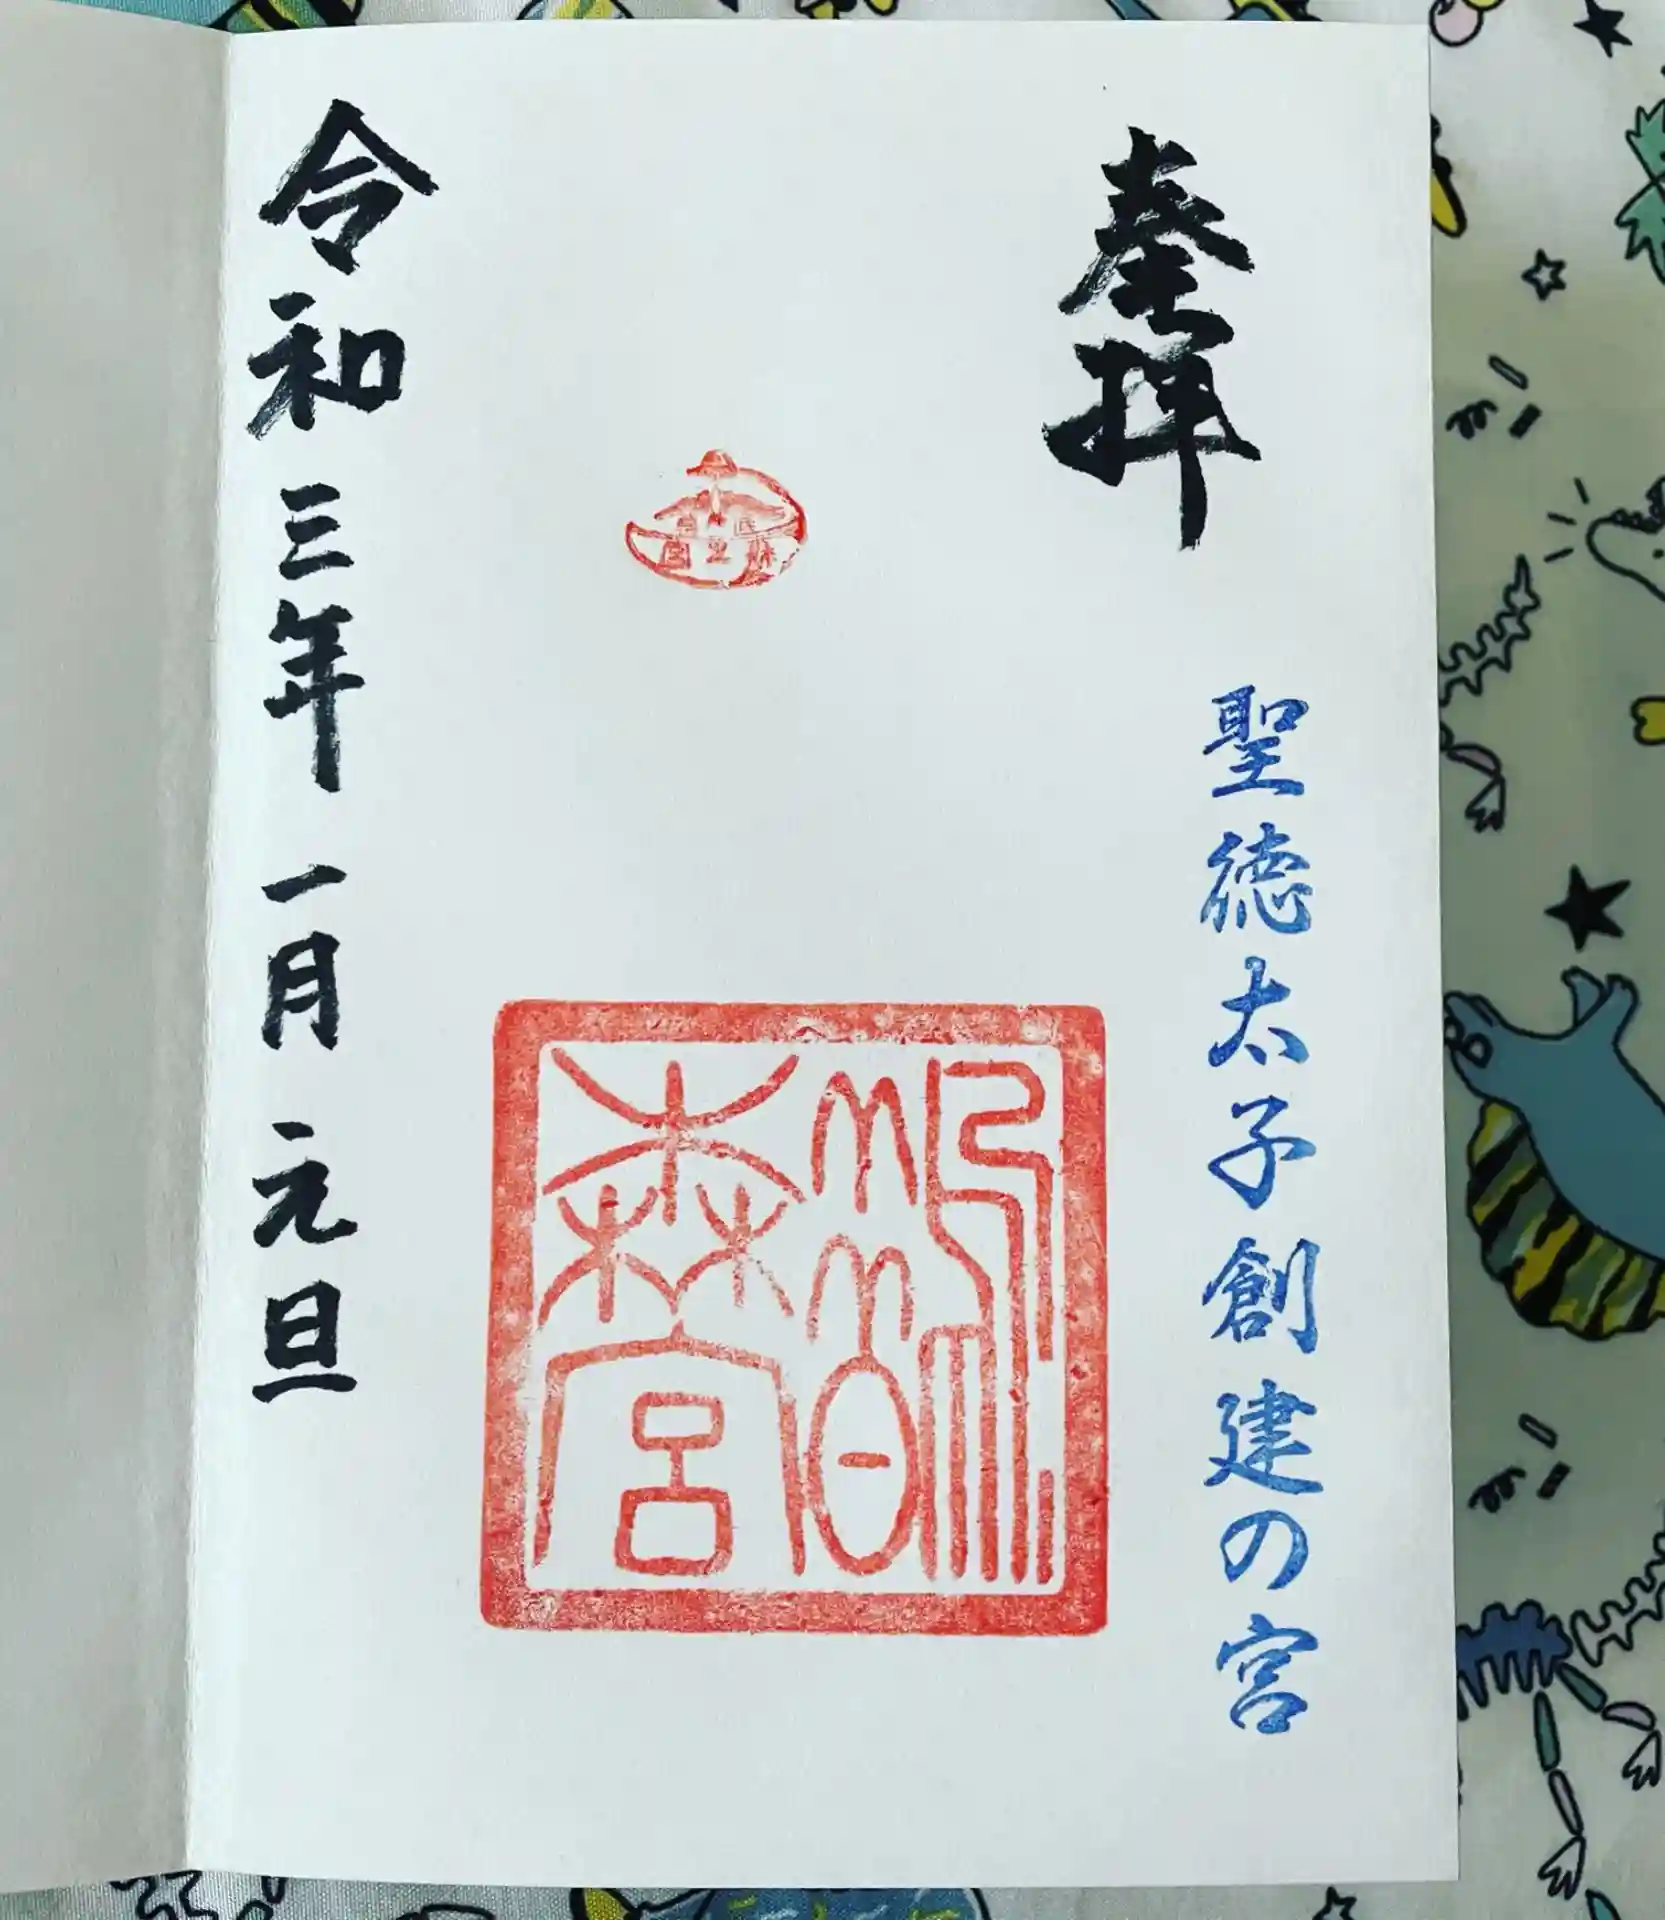 奉拝
聖徳太子創建の宮
鵲森宮
令和三年一月元旦